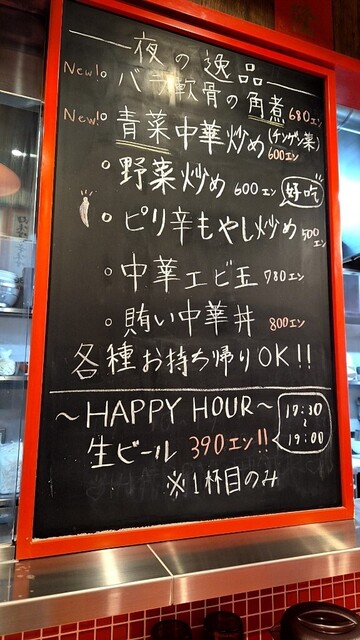 夜の逸品
New!。バラ軟骨の角煮 680エン
New!。青菜中華炒め(チンゲン菜) 600エン
。野菜炒め 600エン 好吃
。ピリ辛もやし炒め 500エン
。中華エビ玉 780エン
。賄い中華丼 800エン
各種お持ち帰りOK!!
～HAPPY HOUR～ 17:30～19:00
生ビール 390エン!!
※1杯目のみ